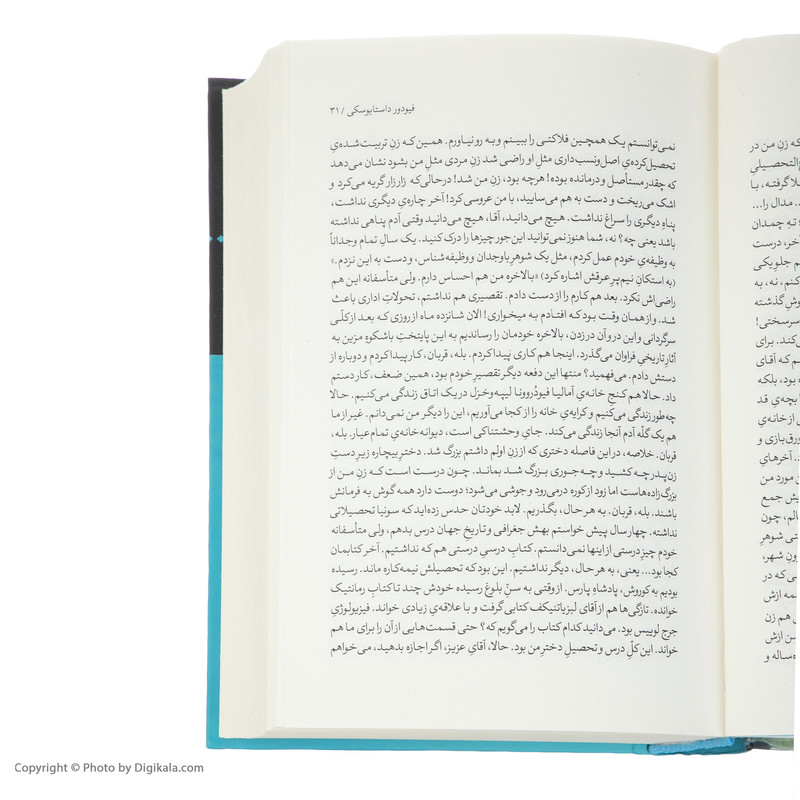 فیودور داستایوسکی / ۳۱
نمی‌توانستم یک همچین فلاکتی را ببینم و به رو نیاورم. همین‌که زنِ تربیت‌شده‌ی
تحصیل‌کرده‌ی اصل‌ونسب‌داری مثلِ او راضی شد زنِ مردی مثلِ من بشود نشان می‌دهد
که چقدر مستأصل و درمانده بوده! هرچه بود، زنِ من شد! درحالی‌که زار زار گریه می‌کرد و
اشک می‌ریخت و دست به هم می‌سایید، با من عروسی کرد! آخر چاره‌ی دیگری نداشت،
پناهِ دیگری را سراغ نداشت. هیچ می‌دانید، آقا، هیچ می‌دانید وقتی آدم پناهی نداشته
باشد یعنی چه؟ نه، شما هنوز نمی‌توانید این‌جور چیزها را درک کنید. یک سالِ تمام وجداناً
به وظیفه‌ی خودم عمل کردم، مثل یک شوهرِ باوجدان و وظیفه‌شناس، و دست به این نزدم.»
(به استکانِ نیم‌پرِ عرقش اشاره کرد) «بالاخره من هم احساس دارم. ولی متأسفانه این هم
راضی‌اش نکرد. بعد هم کارم را از دست دادم. تقصیری هم نداشتم، تحولاتِ اداری باعث
شد. و از همان وقت بود که افتادم به میخواری! الان شانزده ماه از روزی که بعد از کلّی
سرگردانی و این در و آن در زدن، بالاخره خودمان را رساندیم به این پایتختِ باشکوهِ مزین به
آثارِ تاریخیِ فراوان می‌گذرد. اینجا هم کاری پیدا کردم. بله، قربان، کار پیدا کردم و دوباره از
دستش دادم. می‌فهمید؟ منتها این دفعه دیگر تقصیرِ خودم بود، همین ضعف، کار دستم
داد. حالا هم کنجِ خانه‌ی آمالیا فیودُروونا لیپه‌وخزل در یک اتاق زندگی می‌کنیم. حالا
چه‌طور زندگی می‌کنیم و کرایه‌ی خانه را از کجا می‌آوریم، این را دیگر من نمی‌دانم. غیر از ما
هم یک گلّه آدم آنجا زندگی می‌کند. جایِ وحشتناکی است، دیوانه‌خانه‌یِ تمام‌عیار. بله،
قربان. خلاصه، در این فاصله دختری که از زنِ اولم داشتم بزرگ شد. دخترِ بیچاره زیرِ دستِ
زن‌پدر چه کشید و چه جوری بزرگ شد بماند. چون درست است که زنِ من از
بزرگ‌زاده‌هاست اما زود از کوره درمی‌رود و جوشی می‌شود؛ دوست دارد همه گوش به فرمانش
باشند. بله، قربان. به هر حال، بگذریم. لابد خودتان حدس زده‌اید که سونیا تحصیلاتی
نداشته. چهار سال پیش خواستم بهش جغرافی و تاریخِ جهان درس بدهم، ولی متأسفانه
خودم چیزِ درستی از اینها نمی‌دانستم. کتابِ درسیِ درستی هم که نداشتیم. آخر کتابمان
کجا بود... یعنی، به هر حال، دیگر نداشتیم. این بود که تحصیلش نیمه‌کاره ماند. رسیده
بودیم به کوروش، پادشاهِ پارس. از وقتی به سنِّ بلوغ رسیده خودش چند تا کتابِ رمانتیک
خوانده. تازگی‌ها هم از آقای لبزیاتنیکف کتابی گرفت و با علاقه‌یِ زیادی خواند. فیزیولوژیِ
جرج لوییس بود. می‌دانید کدام کتاب را می‌گویم که؟ حتی قسمت‌هایی از آن را برای ما هم
خواند. این کلّ درس و تحصیلِ دخترِ من بود. حالا، آقایِ عزیز، اگر اجازه بدهید، می‌خواهم
که زنِ من در
التحصیلیِ
لا گرفته، با
. مدال را...
تهِ چمدان
آخر، درست
م جلوِ یکی
کنم، نه، به
وشِ گذشته
سرسختی!
کند. برای
م که آقای
ه بود، بلکه
بچه‌ی قد
از خانه‌ی
ورق‌بازی و
. آخرهای
ن مورد من
یش جمع
الم، چون
نی شوهرِ
رونِ شهر،
ی که در
مه ازش
ی هم زن
سن ازش
ه‌ساله و
Copyright © Photo by Digikala.com